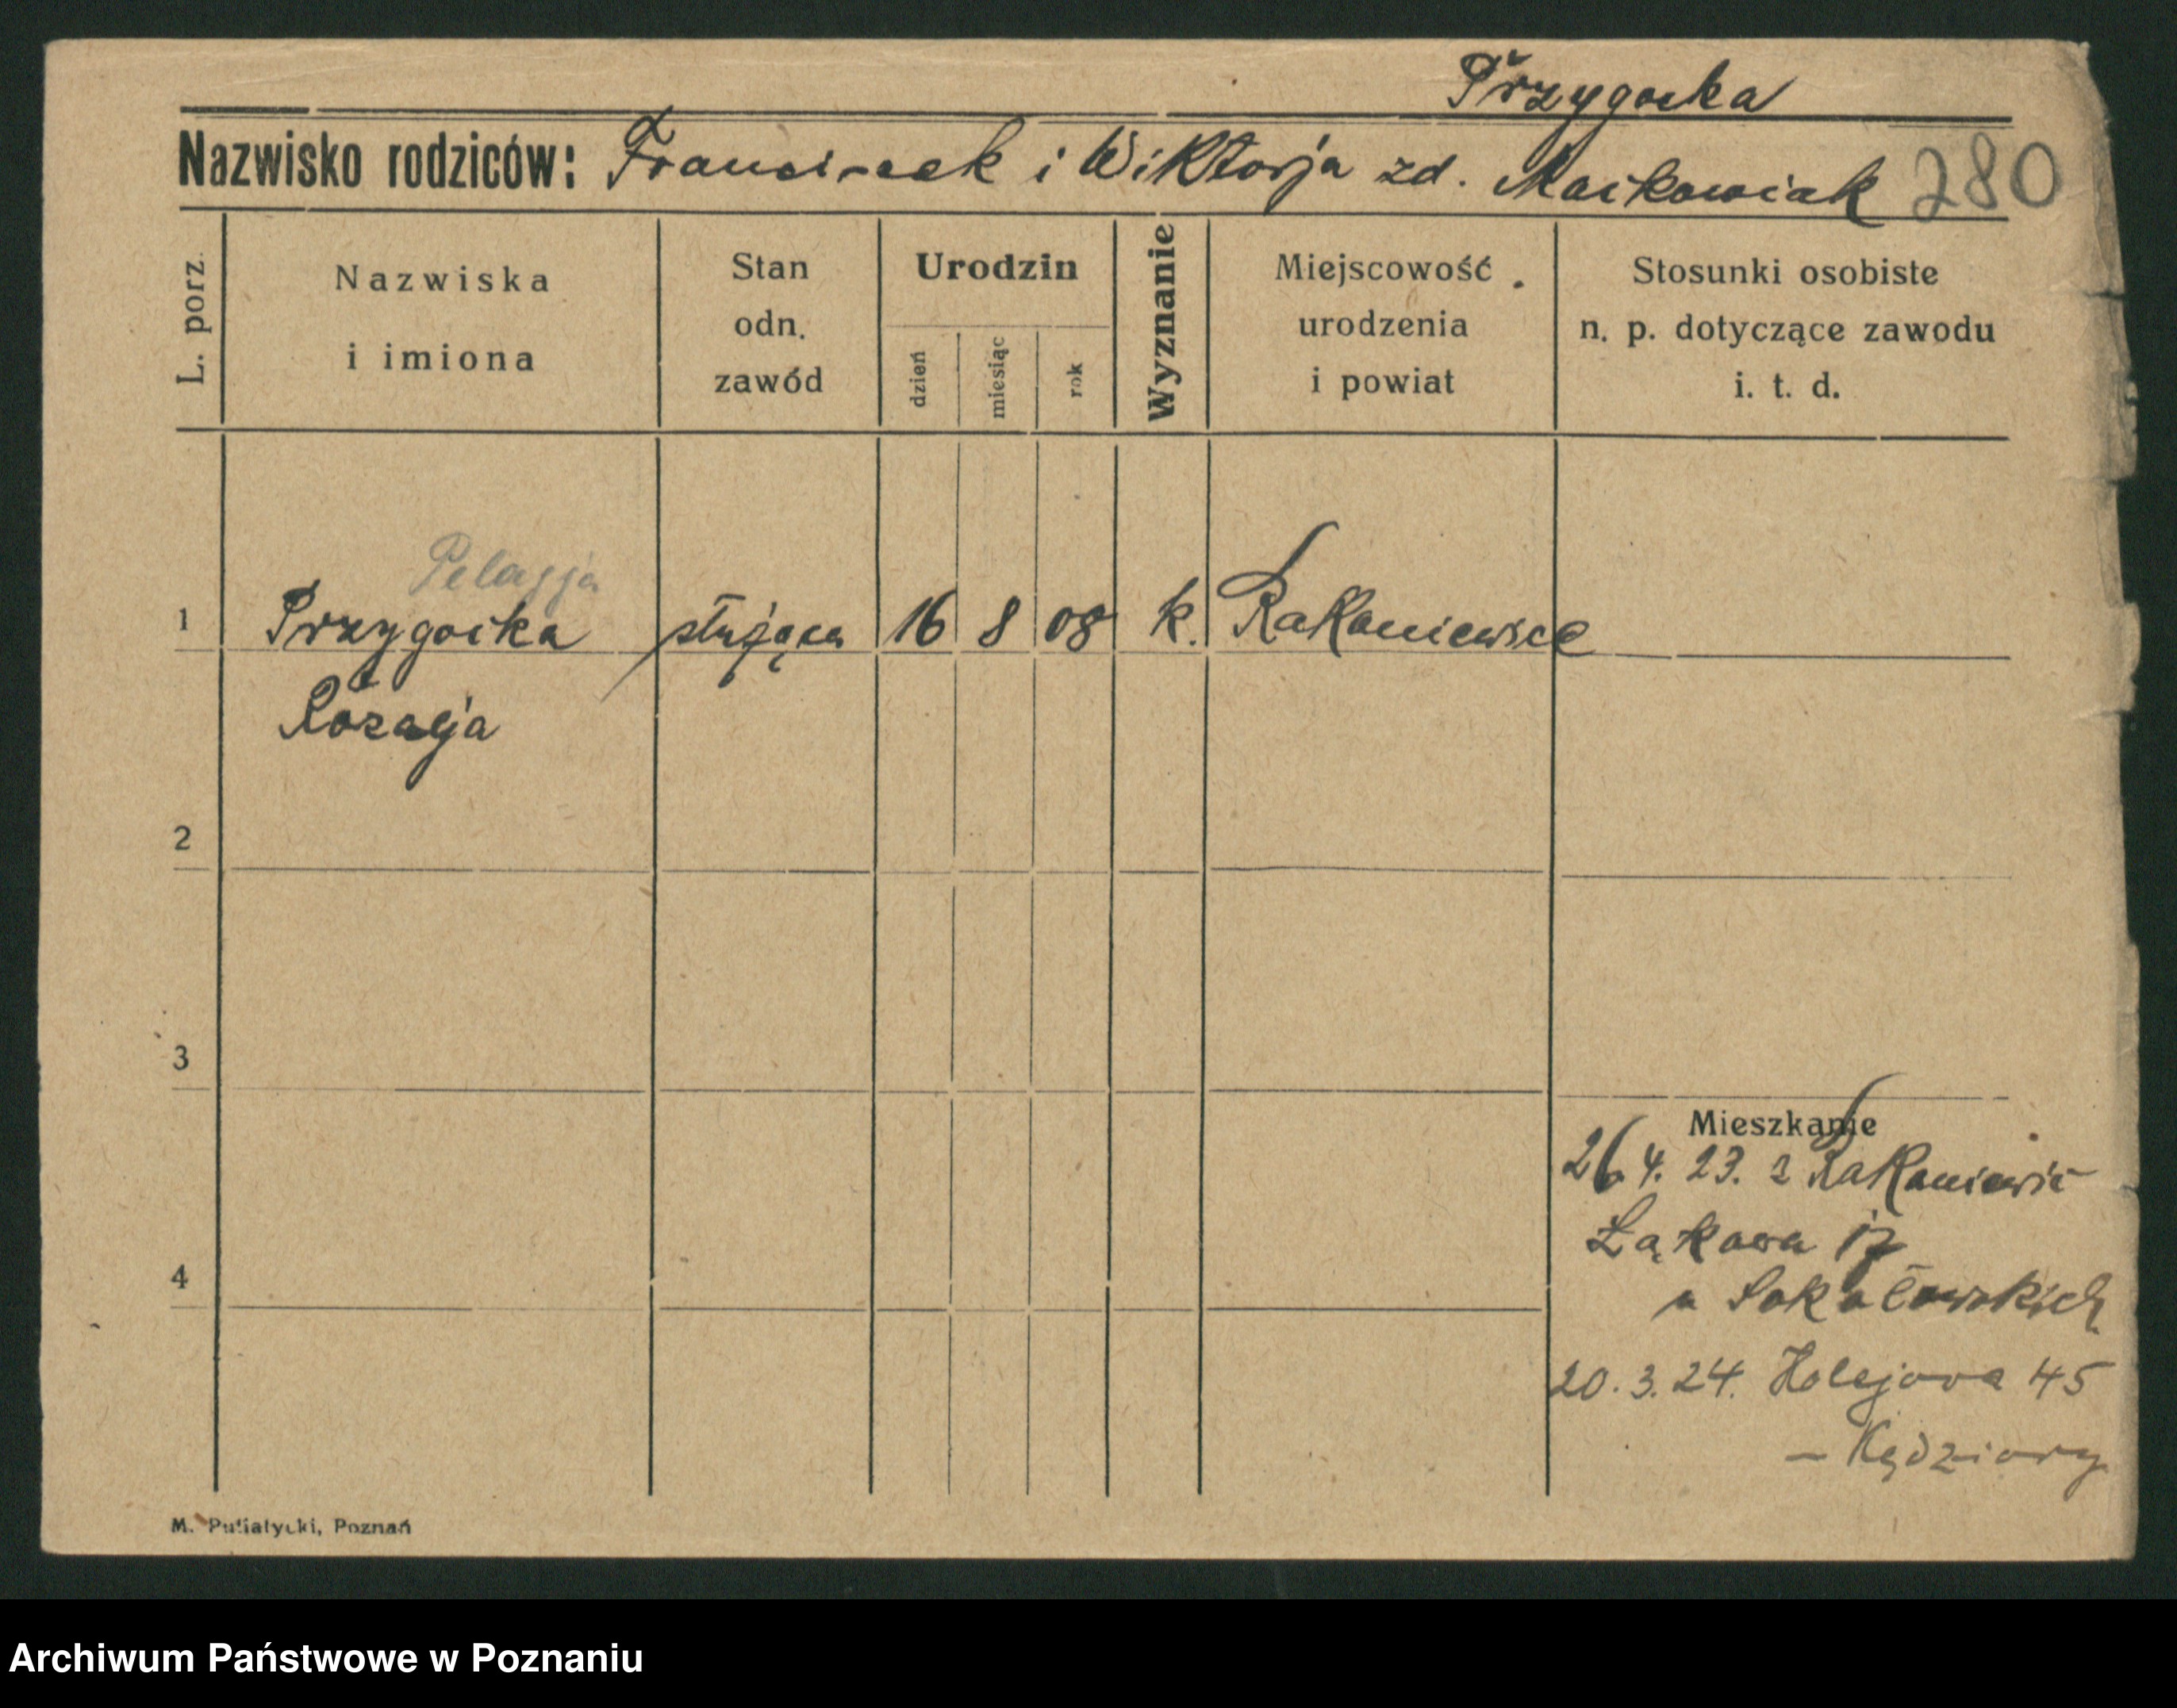 Przygocka
Nazwisko rodziców: Franciszek i Wiktorja zd. Maćkowiak 280
L. porz.
Nazwiska
i imiona
Stan
odn.
zawód
Urodzin
dzień
miesiąc
rok
Wyznanie
Miejscowość
urodzenia
i powiat
Stosunki osobiste
n. p. dotyczące zawodu
i. t. d.
Pelagja
1 Przygocka służąca 16 8 08 k. Rakoniewice
Rozalja
2
3
Mieszkanie
26.4.23. z Rakoniewic
Łąkowa
4
u Sokołowskich
20.3.24. Kolejowa 45
– Kędziory
M. Putiatycki, Poznań
Archiwum Państwowe w Poznaniu